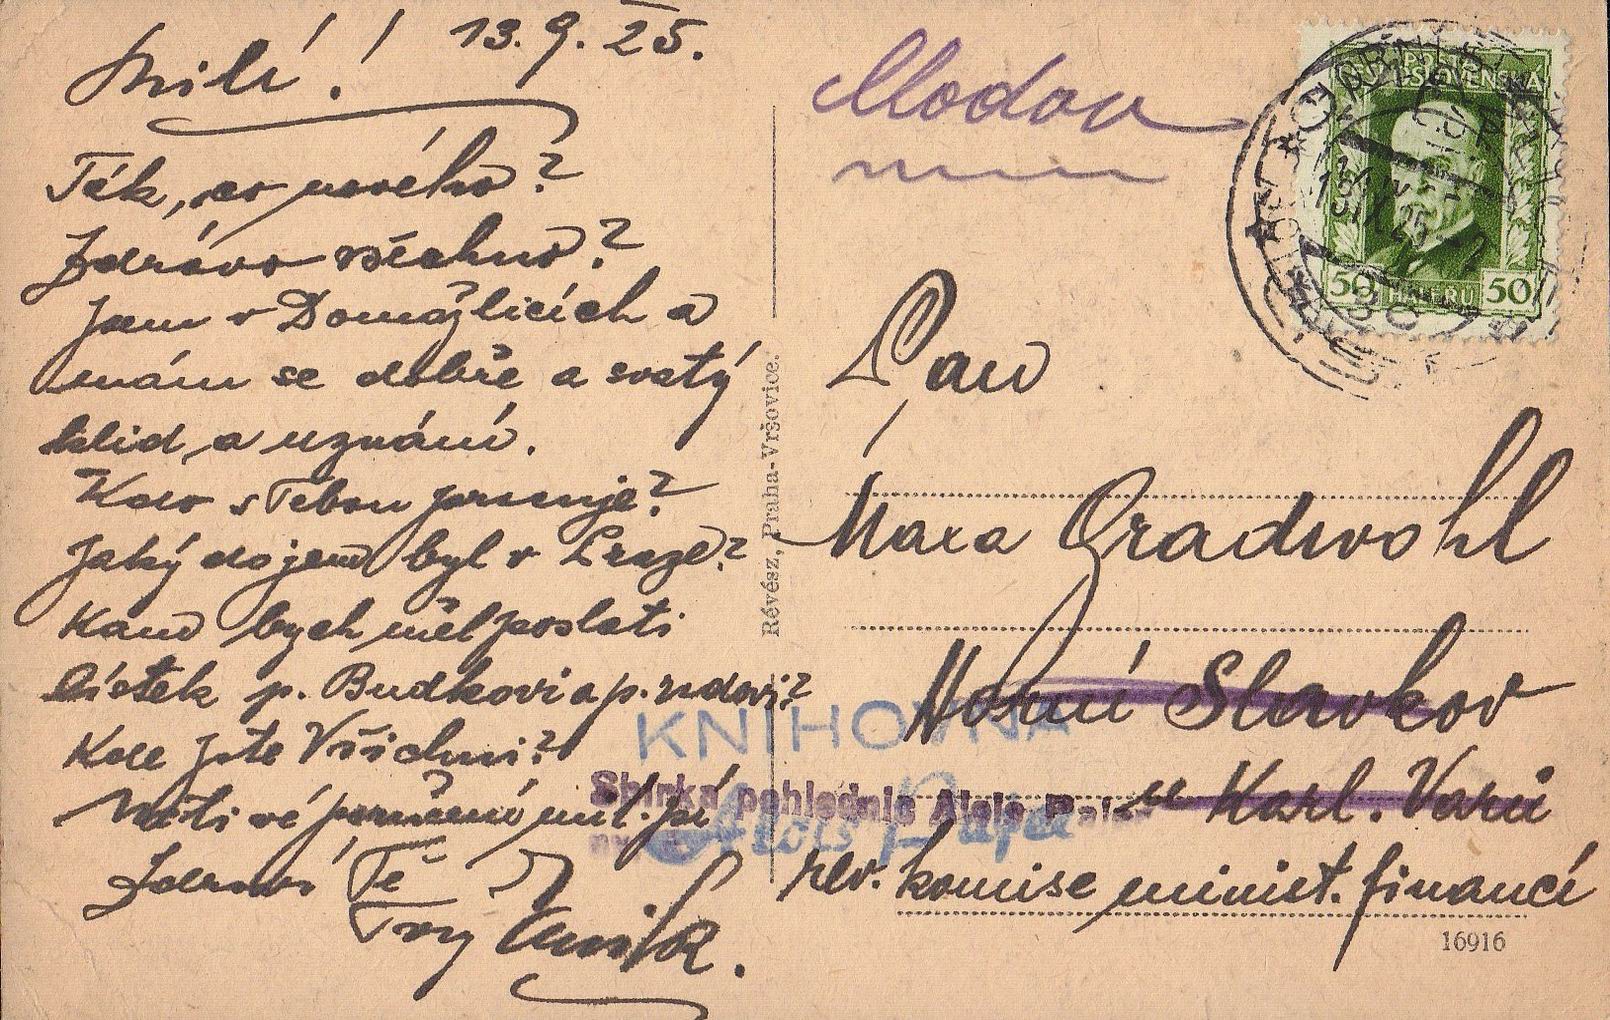 13.9.25.
Milý!
Ták, co nového?
Zdrávo všechno?
Jsem v Domažlicích a
mám se dobře a svatý
klid a uznání.
Kdo s Tebou pracuje?
Jaký dojem byl v Praze?
Kam bych měl poslati
lístek p. Budkovi a p. radovi?
Kde jste Všichni?
Zdraví Tě
Tvý
Modov
Pan
Maxa Gradwohl
Horní Slavkov
u Karl. Varů
rev. komise minist. financí
Révész, Praha-Vršovice.
16916
KNIHOVNA
Sbírka pohlednic Alois
POŠTA
ČESKOSLOVENSKÁ
50 HALÉŘŮ 50
13.IX.25